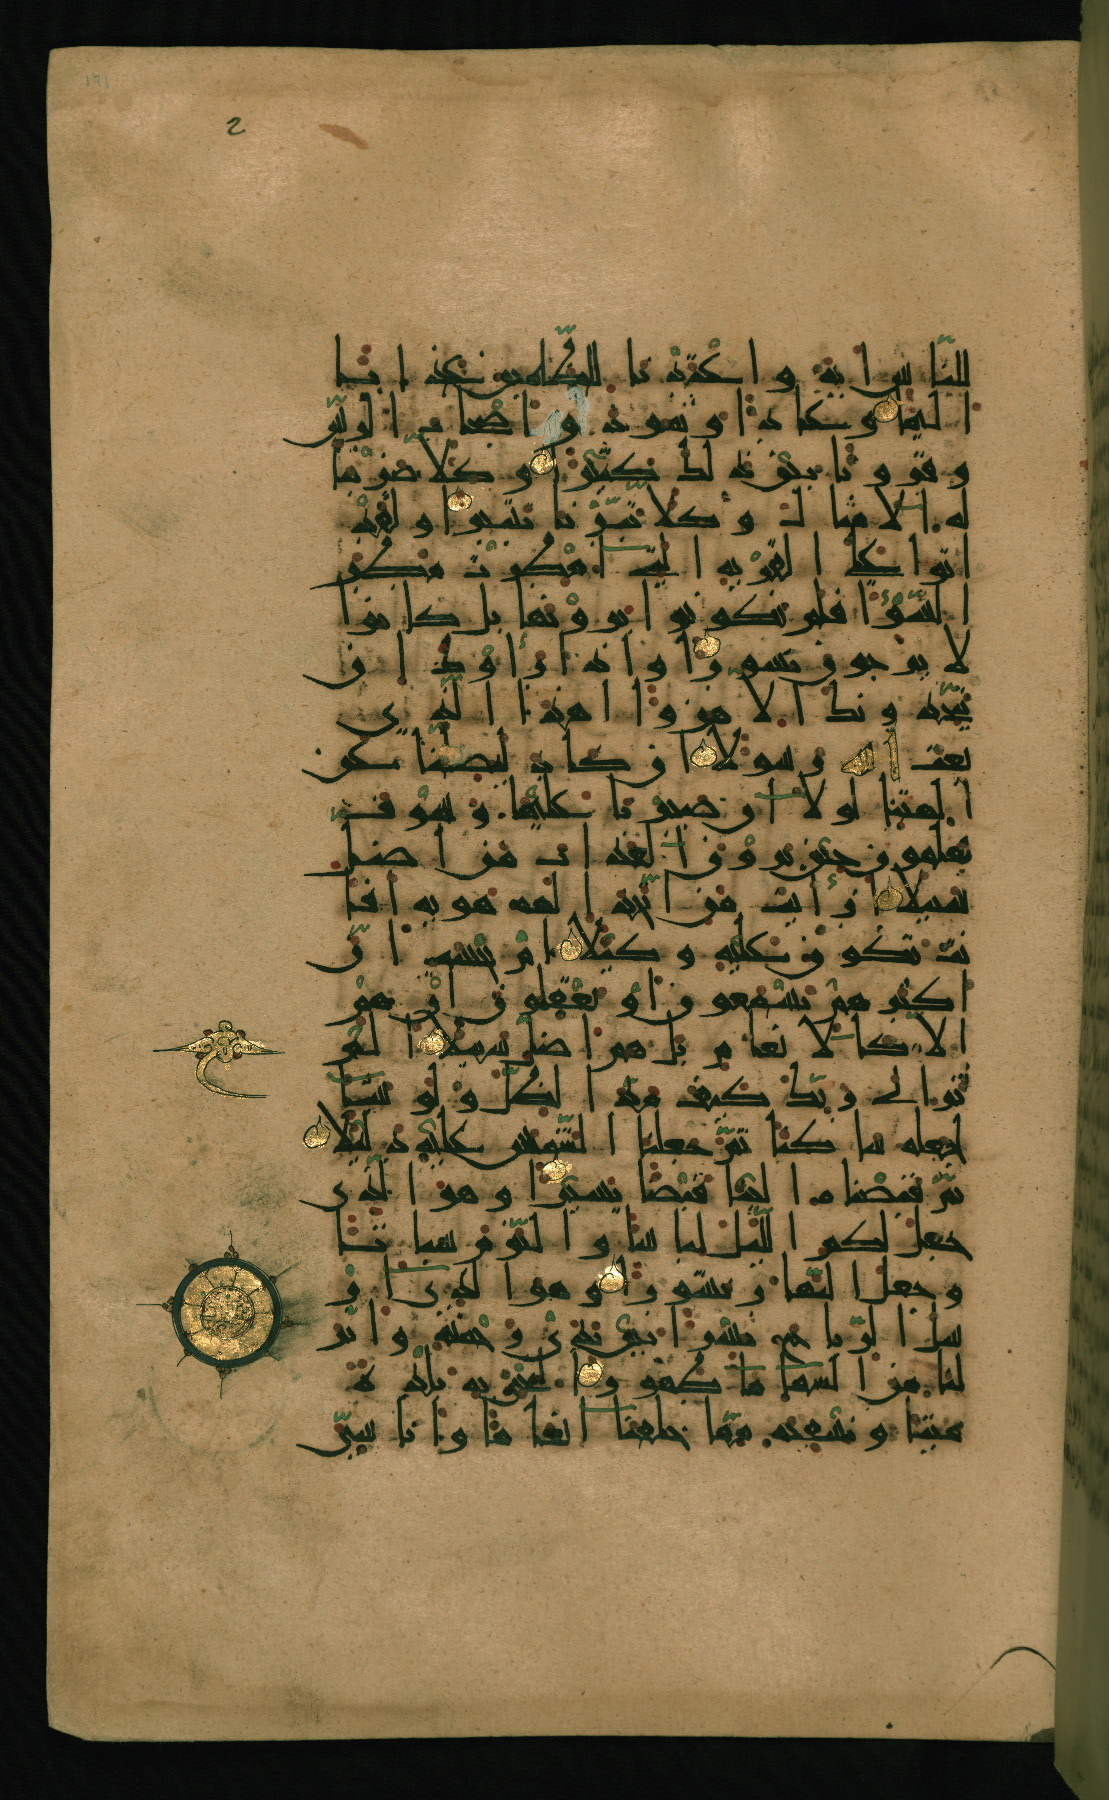 2
للناس اية واعتدنا للظلمين عذابا
اليما وعادا وثمودا واصحاب الرس
وقرونا بين ذلك كثيرا وكلا ضربنا
له الامثال وكلا تبرنا تتبيرا ولقد
اتوا على القرية التي امطرت مطر
السوء افلم يكونوا يرونها بل كانوا
لا يرجون نشورا واذا راوك ان
يتخذونك الا هزوا اهذا الذي
بعث الله رسولا ان كاد ليضلنا عن
الهتنا لولا ان صبرنا عليها وسوف
يعلمون حين يرون العذاب من اضل
سبيلا ارايت من اتخذ الهه هويه افا
نت تكون عليه وكيلا ام تحسب ان
اكثرهم يسمعون او يعقلون ان هم
الا كالانعام بل هم اضل سبيلا الم
تر الى ربك كيف مد الظل ولو شا
لجعله ساكنا ثم جعلنا الشمس عليه دليلا
ثم قبضناه الينا قبضا يسيرا وهو الذي
جعل لكم الليل لباسا والنوم سباتا
وجعل النهار نشورا وهو الذي ار
سل الرياح نشرا بين يدي رحمته وانز
لنا من السما ما طهورا لنحيي به بلدة
ميتا ونسقيه مما خلقنا انعاما واناسي